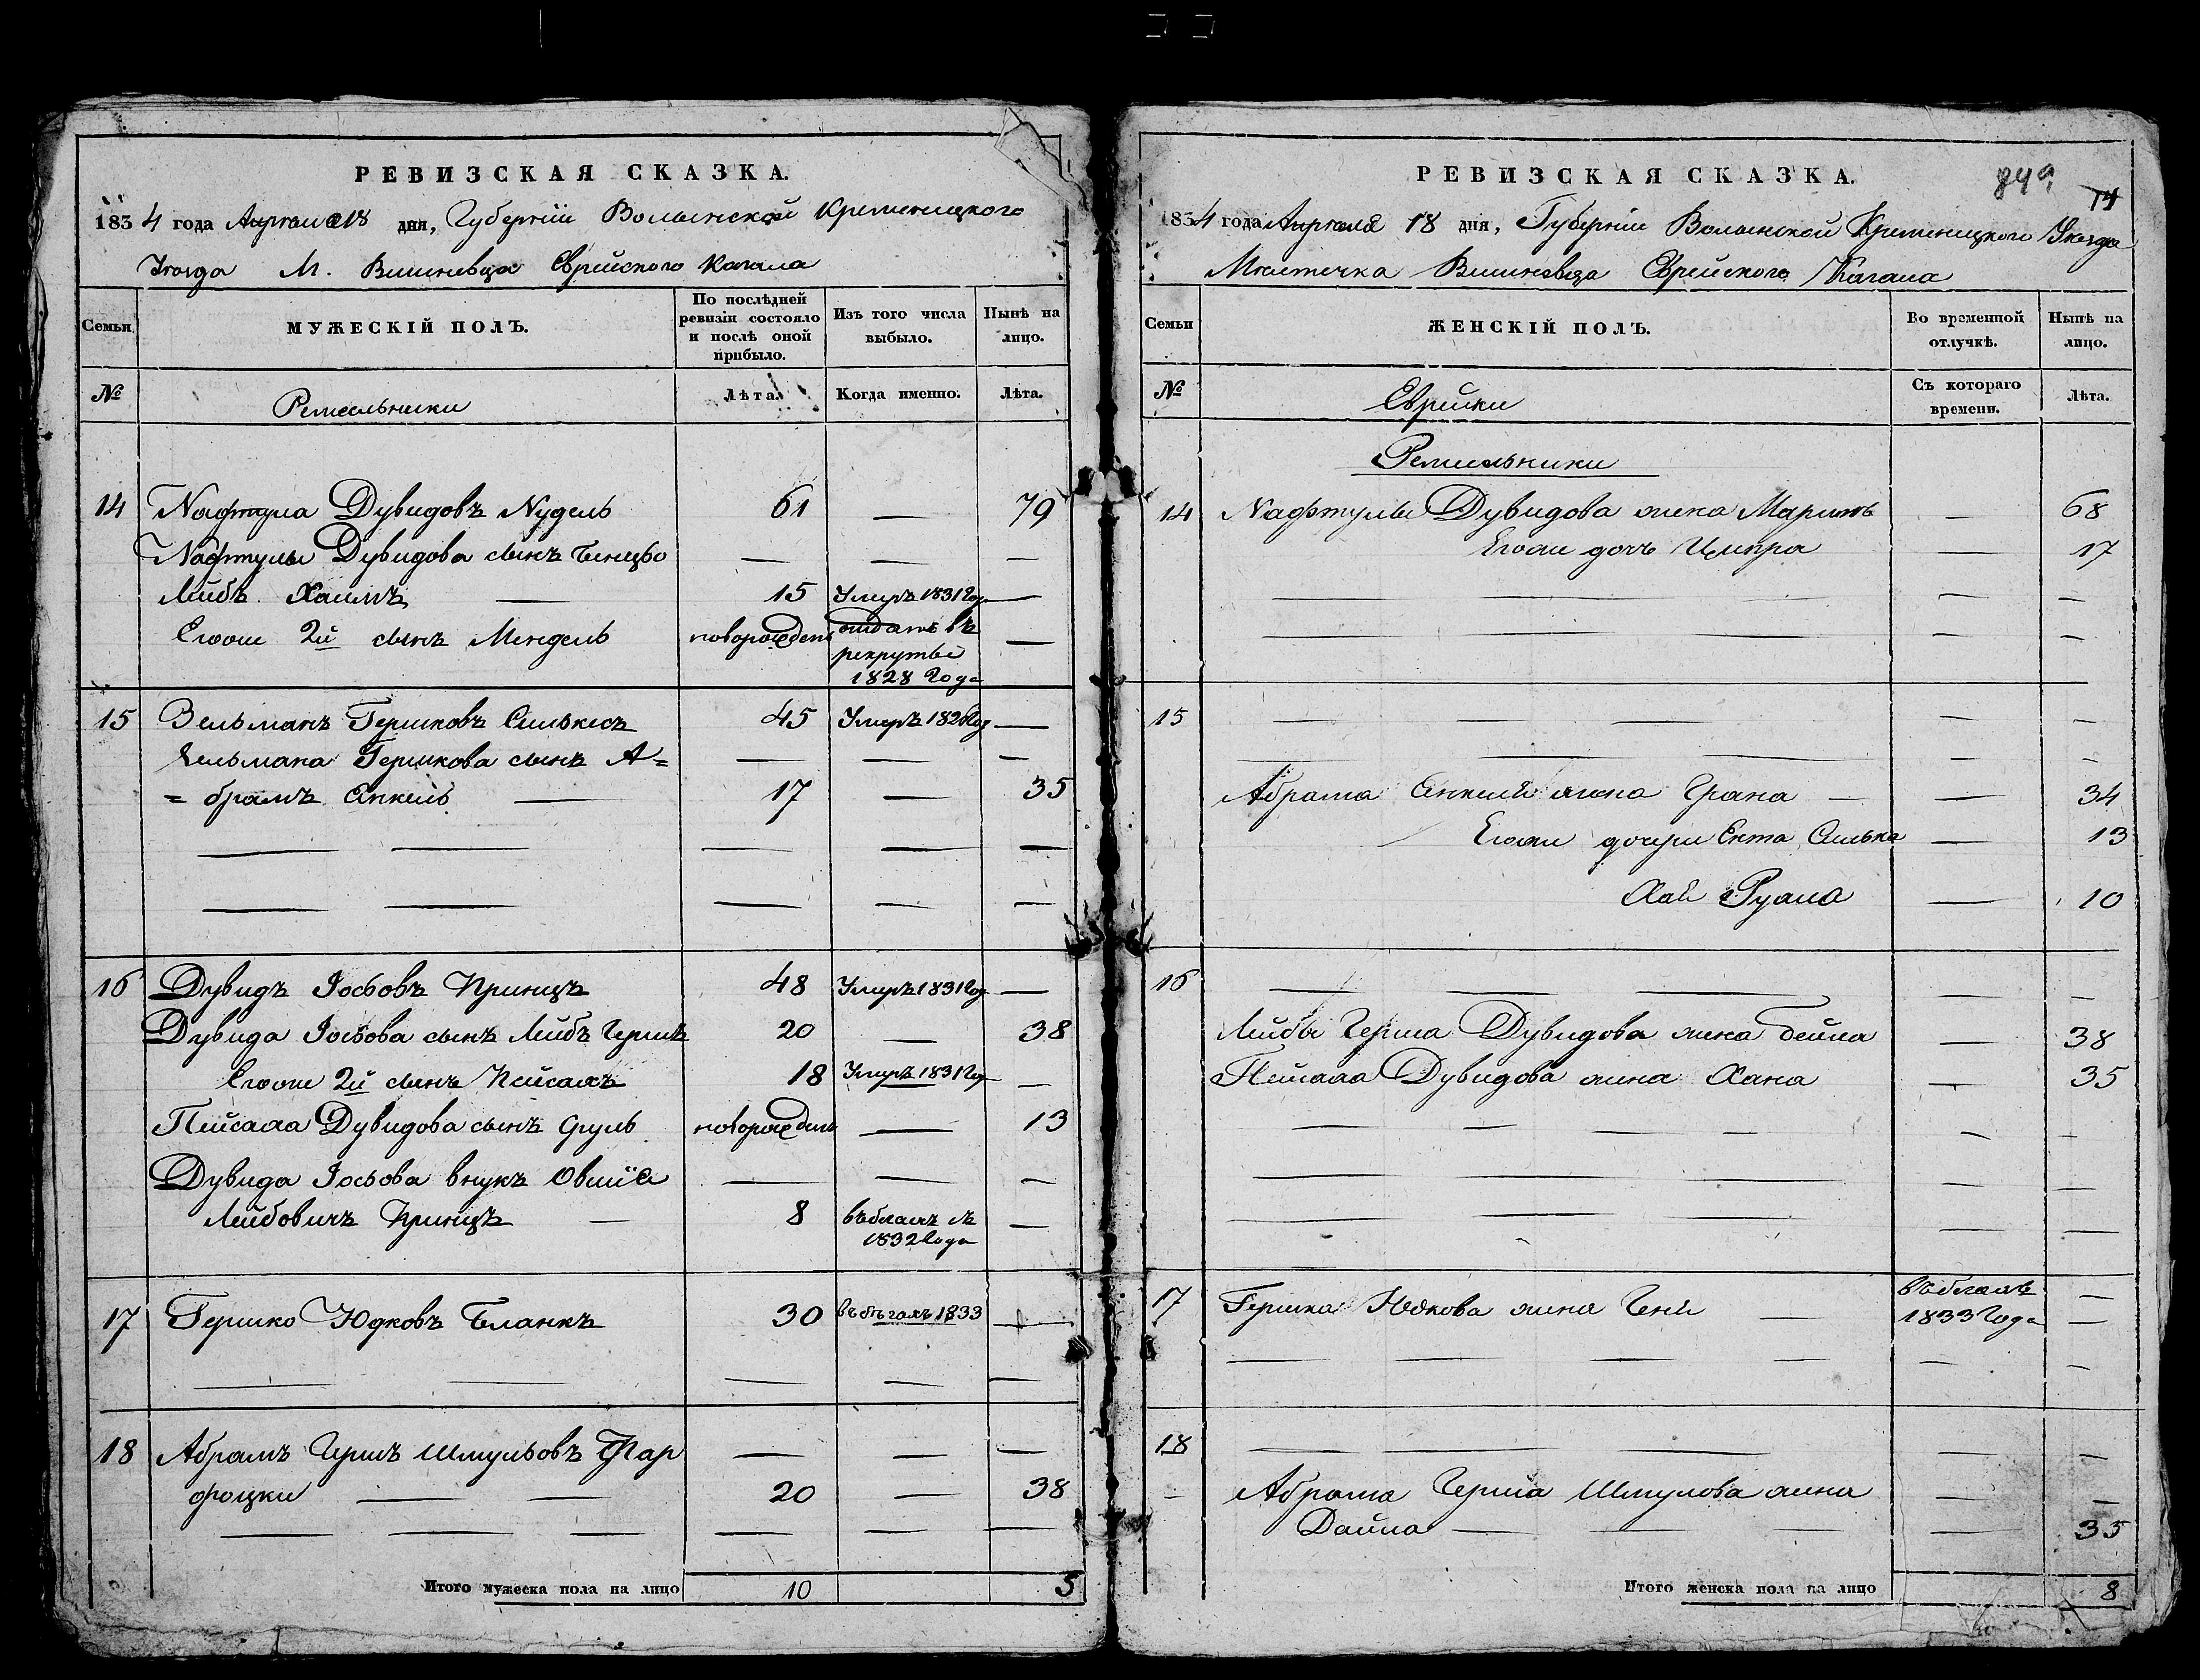 РЕВИЗСКАЯ СКАЗКА.
1834 года Апреля 18 дня, Губерніи Волынской Кременецкого
Уезда М. Вишневца Еврейского Кагала
Семьи
МУЖЕСКІЙ ПОЛЪ.
По послѣдней ревизіи состояло и послѣ оной прибыло.
Изъ того числа выбыло.
Нынѣ на лицо.
№
Ремесльники
Лѣта.
Когда именно.
Лѣта.
14 Нафтула Дувидовъ Нудель 61 — 79
Нафтулы Дувидова сынъ Бенцьо — — —
Лейбъ Хаимъ — 15 Умеръ 1831 Год —
Егоже 2й сынъ Мендель новорожденъ отданъ въ —
рекруты
1828 Года
15 Зельманъ Гершковъ Силькесъ 45 Умеръ 1826 Год —
Зельмана Гершкова сынъ А= — — —
= брамъ Янкель — 17 — 35
— — — — —
— — — — —
16 Дувидъ Іосьовъ Принцъ 48 Умеръ 1831 Год —
Дувида Іосьова сынъ Лейбъ Гершъ 20 — 38
Егоже 2й сынъ Пейсахъ 18 Умеръ 1831 Год —
Пейсаха Дувидова сынъ Сруль новорожденъ — 13
Дувида Іосьова внукъ Овшій — — —
Лейбовичъ Принцъ — 8 въ бегахъ съ —
1832 Года
17 Гершко Юдковъ Бланкъ 30 въ бѣгахъ 1833 —
— — — — —
18 Абрамъ Гершъ Шмульовъ — — —
— — 20 — 38
— — — — — —
Итого мужеска пола на лицо 10 5
РЕВИЗСКАЯ СКАЗКА.
84а
14
1834 года Апреля 18 дня, Губерніи Волынской Кременецкого Уезда
Местечка Вишневца Еврейского Кагала
Семьи
ЖЕНСКІЙ ПОЛЪ.
Во временной отлучкѣ.
Нынѣ на лицо.
№
Еврейки
Съ котораго времени.
Лѣта.
Ремесльники
14 Нафтулы Дувидова жена Маримъ — 68
Егоже дочь Ципра — 17
— — — — —
— — — — —
15 — — — — —
— — — — —
Абрама Янкеля жена Грана — — 34
Егоже дочери Ента Силька — 13
Хая Рухла — 10
16 — — — — —
Лейбы Герша Дувидова жена Бейла — 38
Пейсаха Дувидова жена Хана — 35
— — — — —
— — — — —
— — — — —
17 Гершка Юдкова жена Геня — въ бегахъ —
1833 Года —
— — — — — —
18 — — — — —
— Абрама Герша Шмулова жена — —
Дайна — — — — 35
Итого женска пола на лицо 8